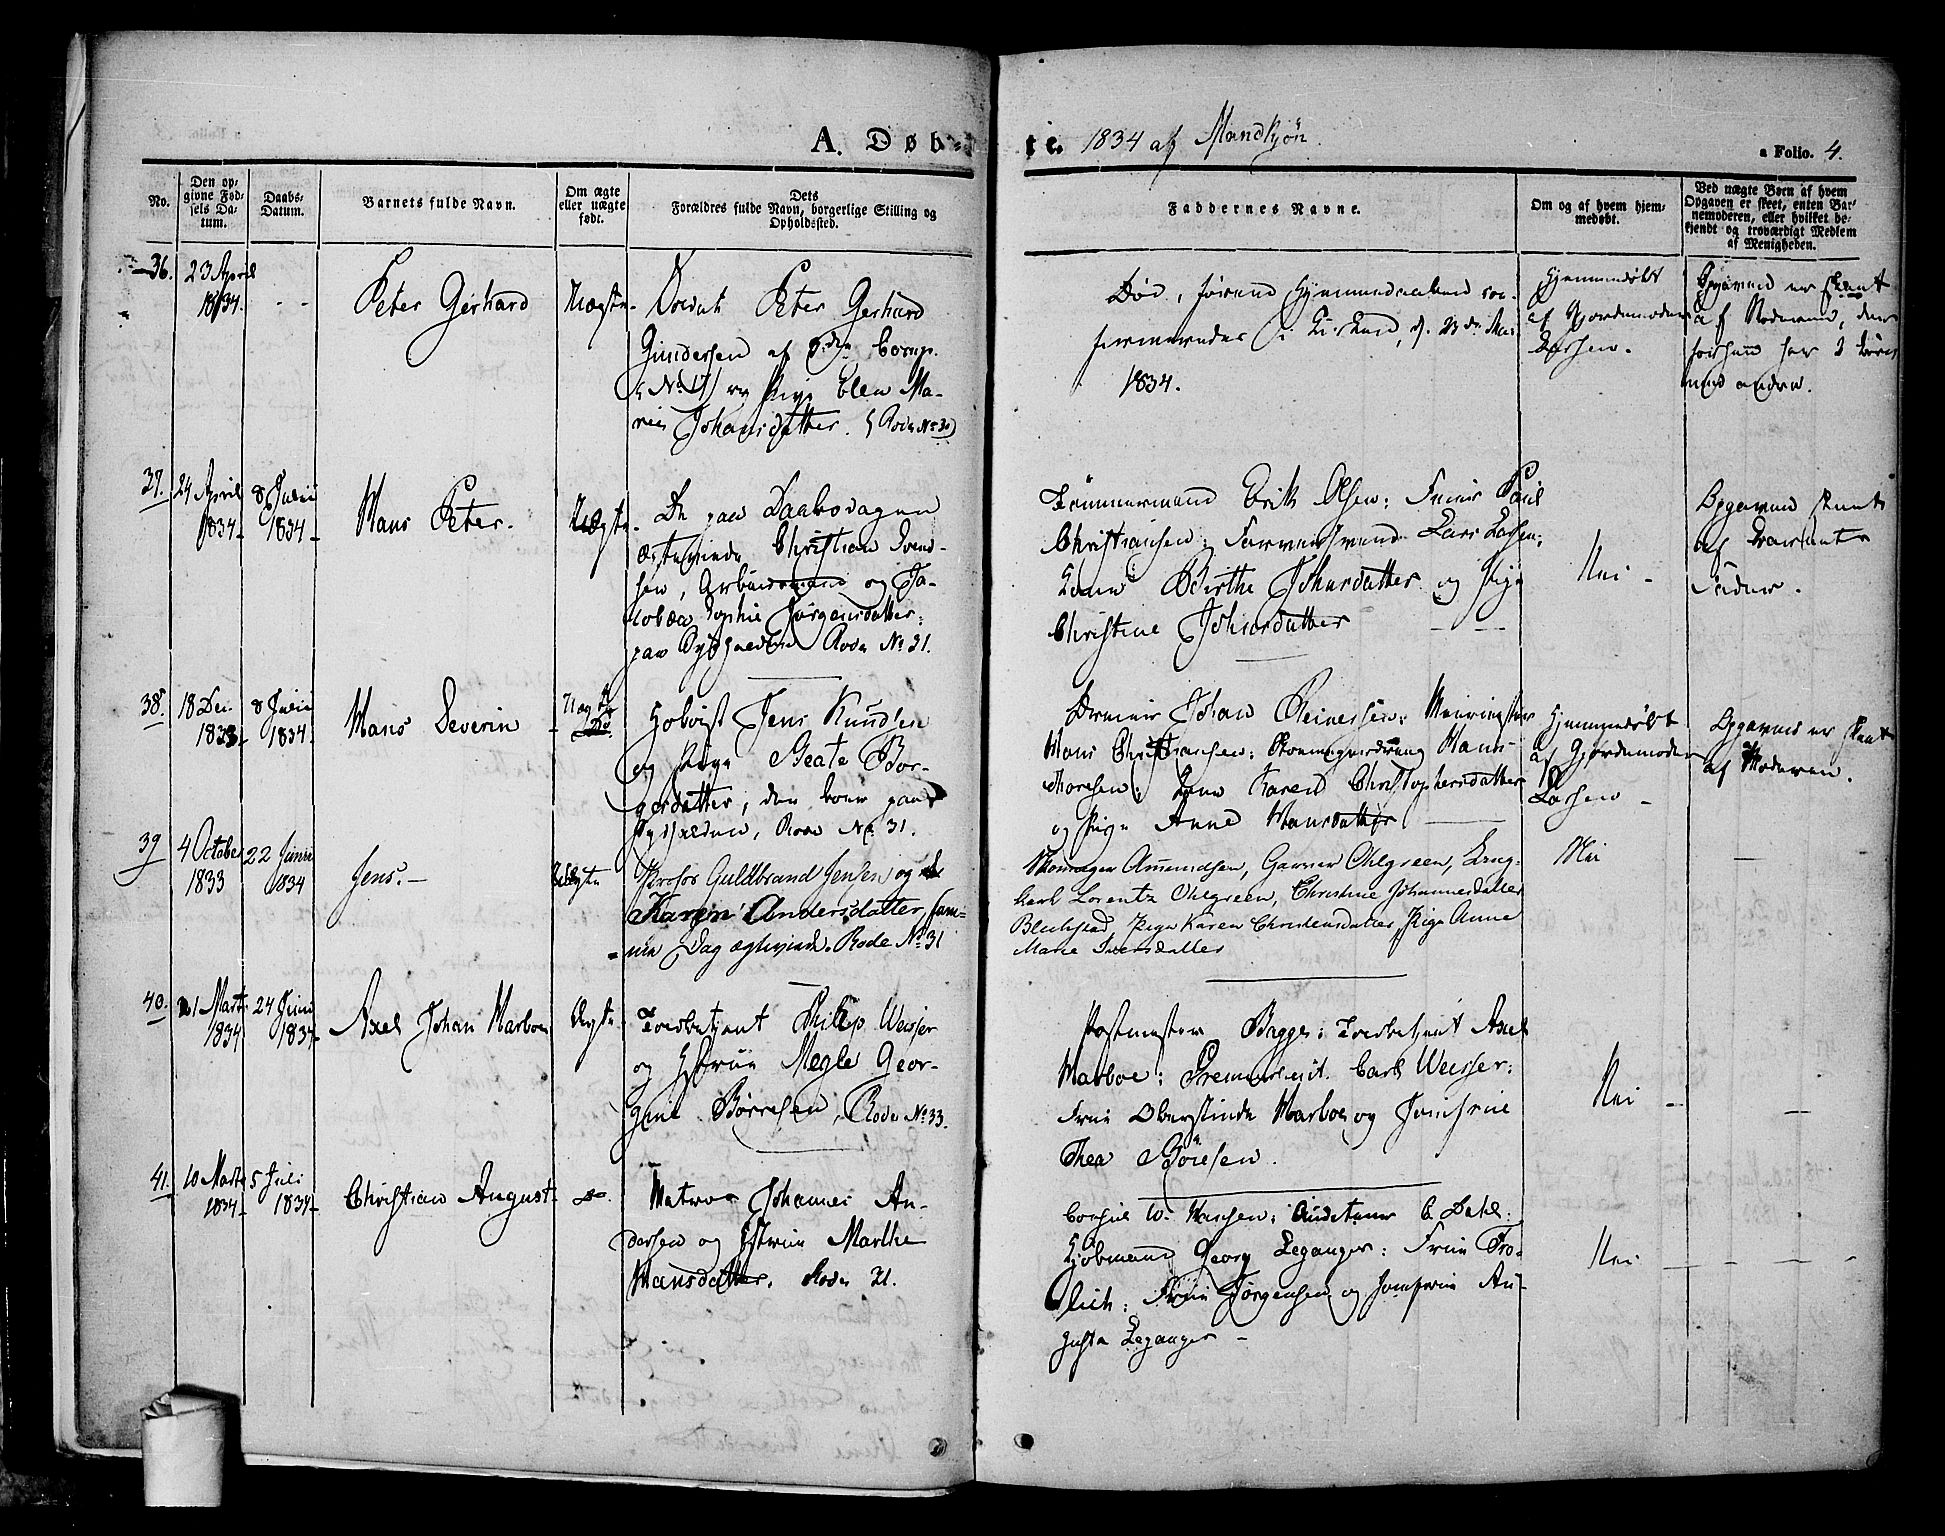 A. Døb-
te. 1834 af Mandkjøn.
a Folio. 4.
No.
Den op-
givne Fød-
sels Da-
tum.
Daabs-
Datum.
Barnets fulde Navn.
Om ægte
eller uægte
født.
Dets
Forældres fulde Navn, borgerlige Stilling og
Opholdssted.
Faddernes Navne.
Om og af hvem hjem-
medøbt.
Ved uægte Børn af hvem
Opgaven er skeet, enten Bar-
nemoderen, eller hvilket be-
kjendt og troværdigt Medlem
af Menigheden.
36.
23 April
1834.
Peter Gerhard
Uægte.
Soldat Peter Gerhard
Gundersen af
No 17) og Pige Elen Ma-
rie Johansdatter. (Rode No 31)
Død, førend Hjemmedaaben con-
firmeredes i Kirken, d. 23de Mai
1834.
Hjemmedøbt
af Gjordemoder
Larsen.
Opgaven er skeet
af Moderen, der
forhen har 3 Børn
med andre.
37.
24 April
1834
8 Julii
1834
Hans Peter.
Uægte.
De paa Daabsdagen
Ægteviede Christian Svend-
sen, Arbeidsmand og Ja-
cobæa Sophie Jørgensdatter;
paa Rode No 31.
Tømmermand Erik Olsen; Paul
Christiansen; Lars Larsen;
Kone Birthe Johnsdatter og Pige
Christine Johnsdatter
Nei
Opgaven skeet
af
38.
18 Dec.
1833
8 Julii
1834
Hans Severin
Uægte
Do.
Jens Knudsen
og Pige Beate Bor-
gersdatter, der boer paa
Rode No. 31.
Johan Reinertsen;
Hans Christiansen; Hans
Thoresen; Kone Karen Christophersdatter
og Pige Anne Hansdatter
Hjemmedøbt
af Gjordemoder
Larsen
Opgaven er skeet
af Moderen.
39
4 October
1833
22 Juni
1834
Jens.
Uægte
Profos Guldbrand Jensen og
Karen Andersdatter, sam-
me Dag ægteviede. Rode No 31
Skomager Amundsen, Garver Ohlgreen,
Carl Lorentz Ohlgreen, Christine Johannesdatter
Blichstad, Pige Karen Christensdatter, Pige Anne
Marie Iversdatter
Nei
40.
21 Marts
1834
24 Juni
1834
Axel Johan Marboe
Ægte.
Toldbetjent Philip Weiser
og Hustrue Megle Geor-
gine Børresen, Rode No 33
Postmester Bagge; Toldbetjent Axel
Marboe; Premierleut. Carl Weisser;
Frue Oberstinde Marboe og Jomfrue
Thea Børesen.
Nei
41.
10 Marts
1834
5 Juli
1834
Christian August
do.
Matros Johannes An-
dersen og Hustrue Marthe
Hansdatter. Rode 31.
W. Hansen; C. Dahl;
Kjøbmand Georg Leganger; Frue Frø-
lich; Frue Jørgensen og Jomfrue Au-
gusta Leganger
Nei